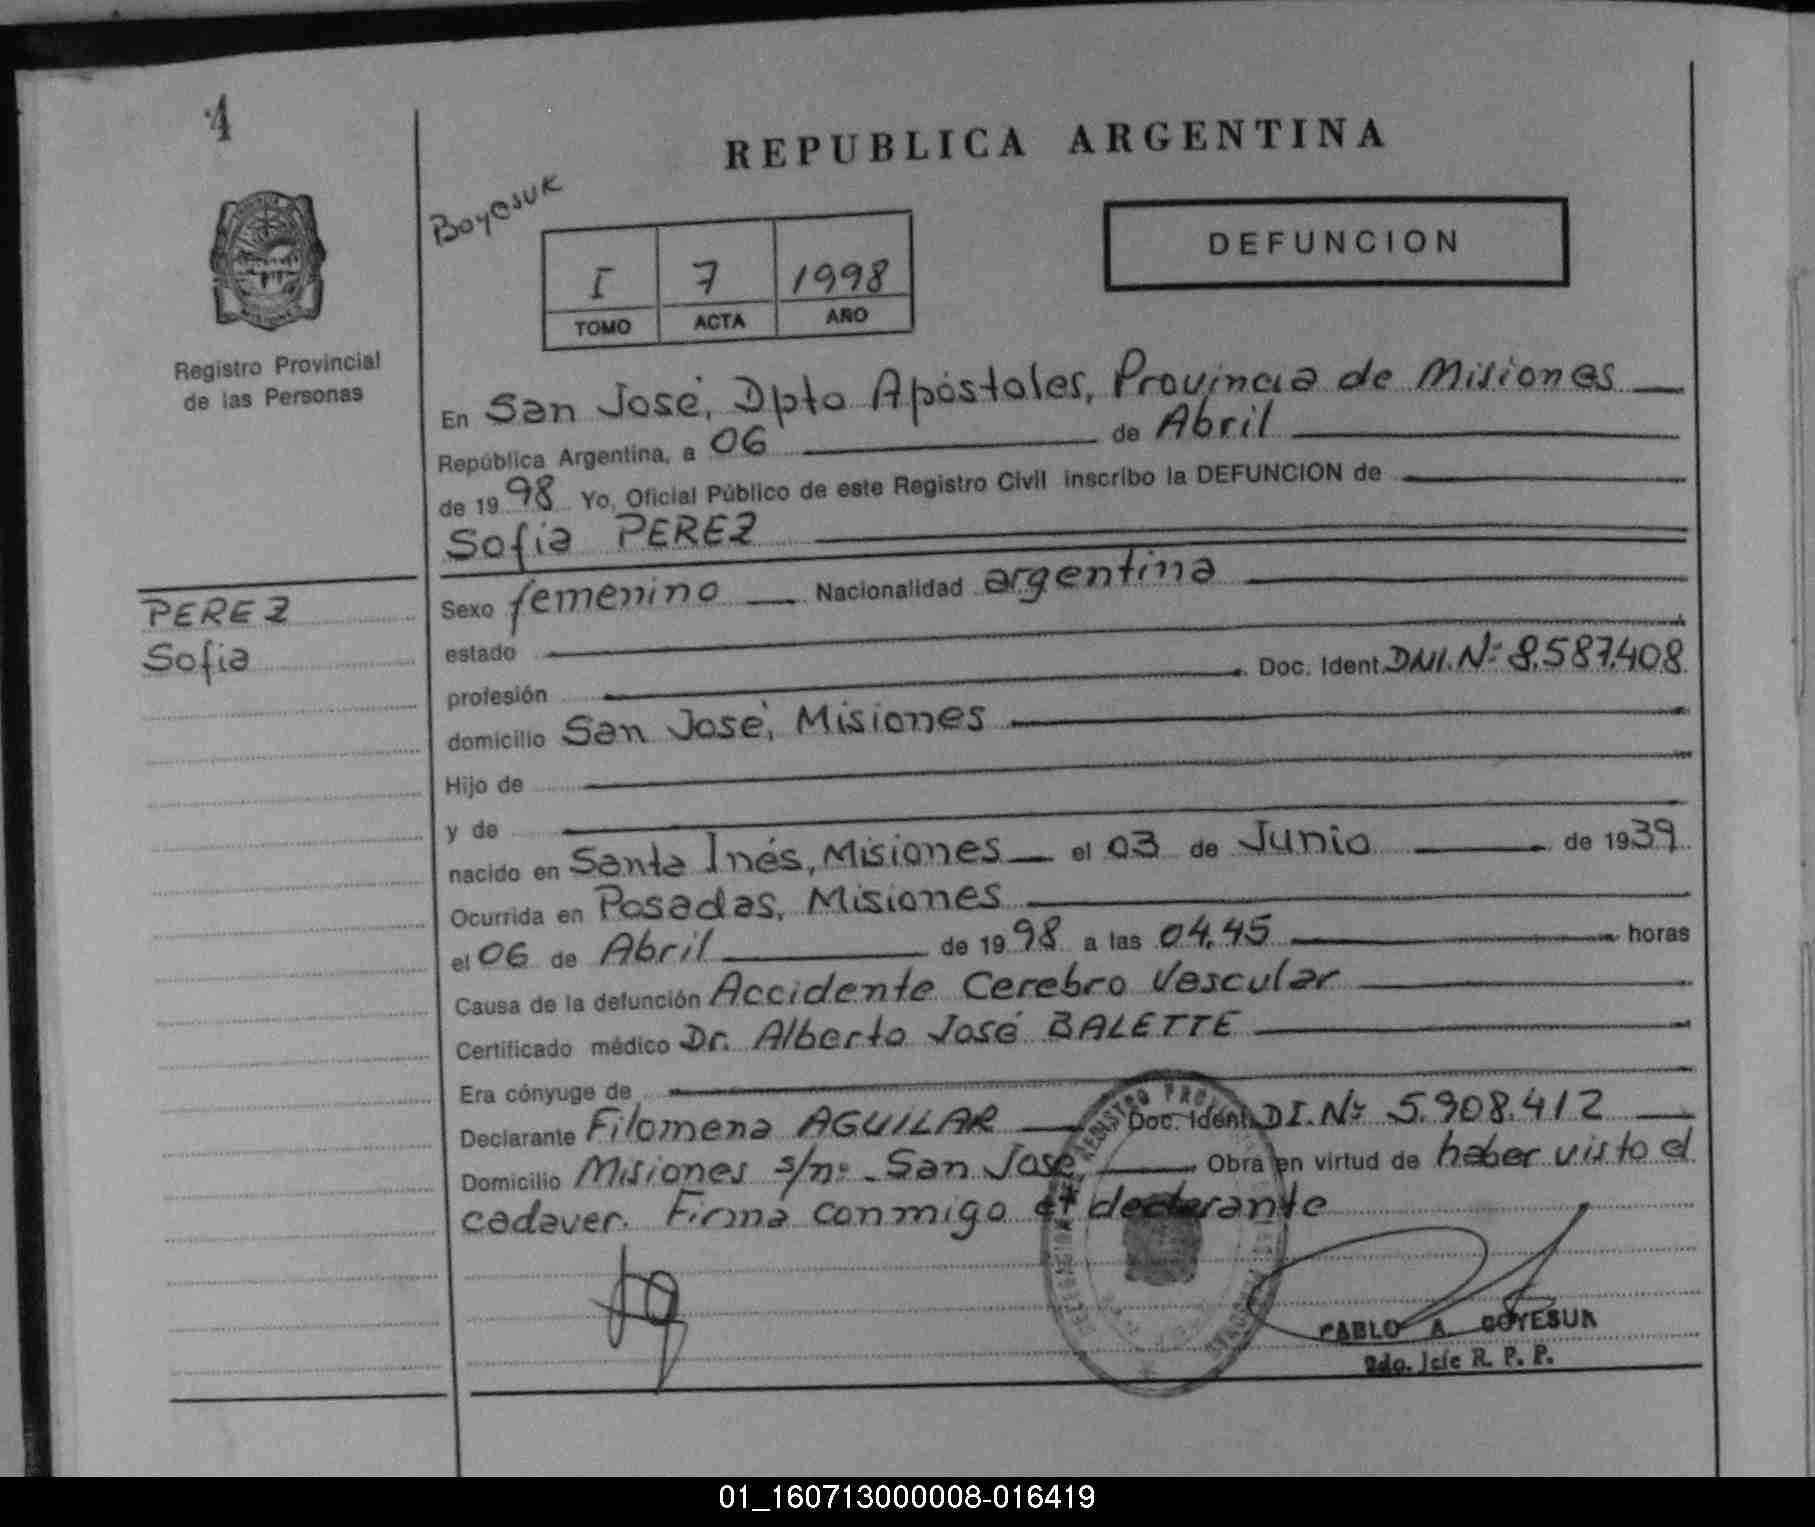 4
REPUBLICA ARGENTINA
Boyesuk
DEFUNCION
I 7 1998
TOMO ACTA AÑO
Registro Provincial
de las Personas
En San José, Dpto Apóstoles, Provincia de Misiones
República Argentina, a 06 de Abril
de 1998 Yo, Oficial Público de este Registro Civil inscribo la DEFUNCION de
Sofia PEREZ
PEREZ
Sofia
Sexo femenino Nacionalidad argentina
estado
profesión Doc. Ident. DNI. Nº 8.587.408
domicilio San José, Misiones
Hijo de
y de
nacido en Santa Inés, Misiones el 03 de Junio de 1939
Ocurrida en Posadas, Misiones
el 06 de Abril de 1998 a las 04.45 horas
Causa de la defunción Accidente Cerebro Vascular
Certificado médico Dr. Alberto José BALETTE
Era cónyuge de
Declarante Filomena AGUILAR Doc. Ident. DI. Nº 5.908.412
Domicilio Misiones s/nº - San José, Obra en virtud de haber visto el
cadaver. Firma conmigo el declarante
PABLO A. BOYESUK
2do. Jefe R. P. P.
01_160713000008-016419